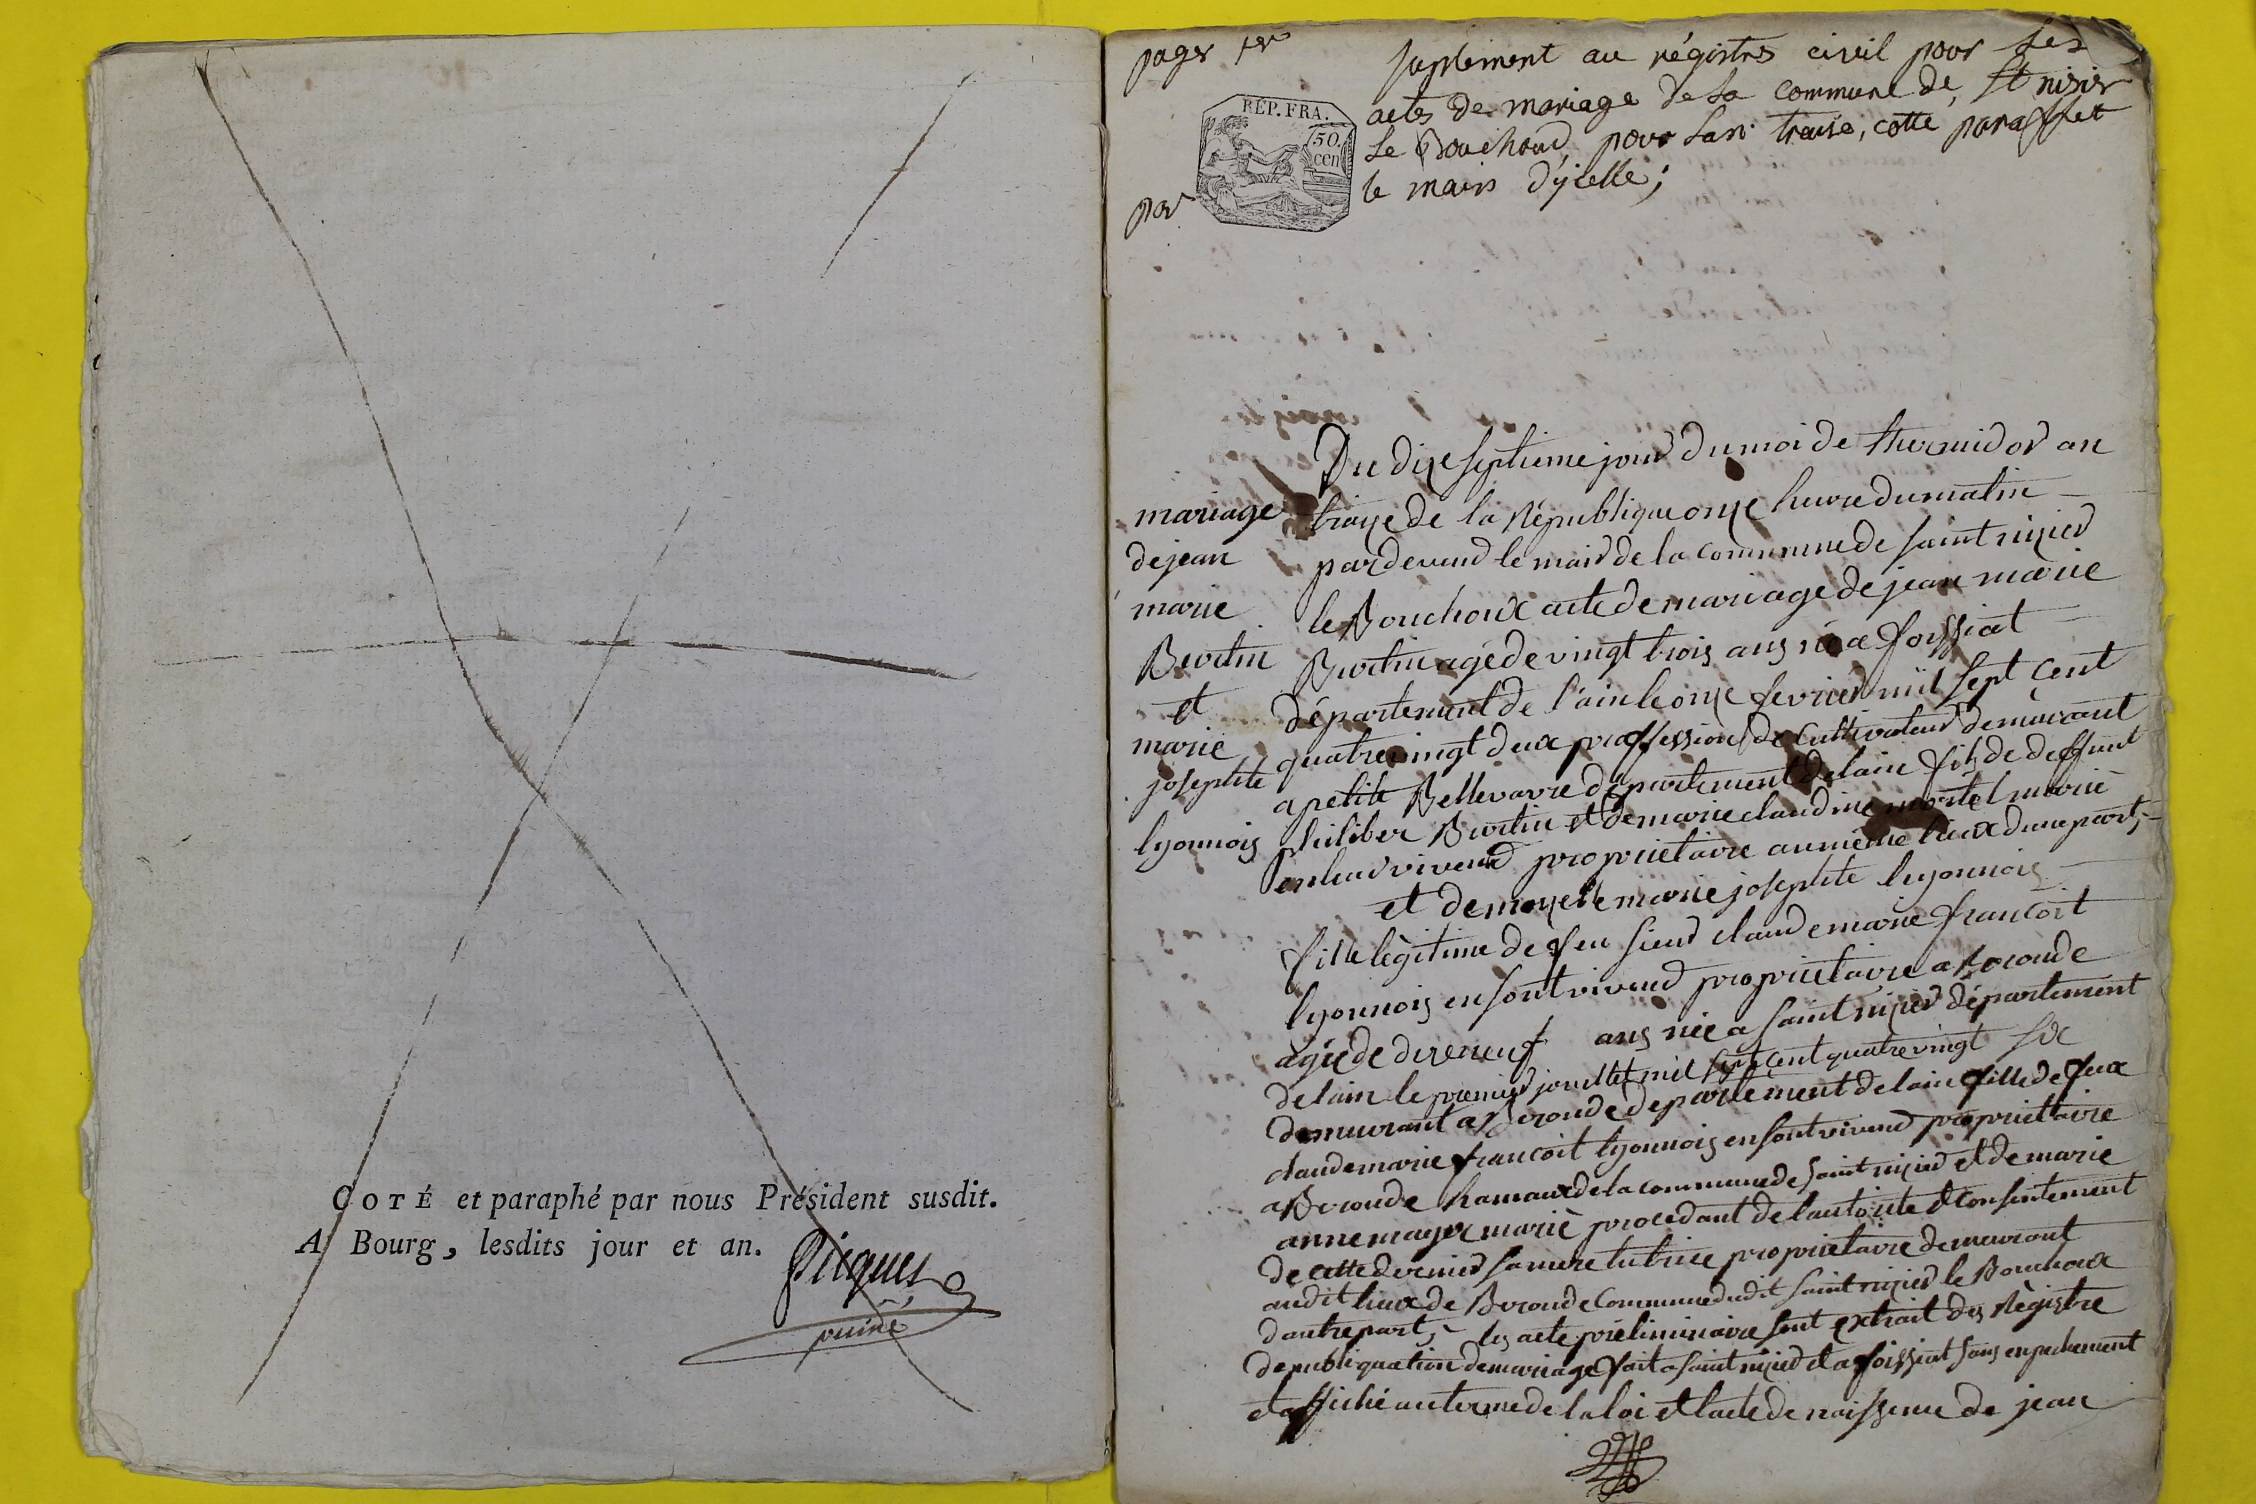 COTÉ et paraphé par nous Président susdit.
A Bourg, lesdits jour et an.
Picquet
puiné
pager 1er
suplement au régistres civil pour les
actes de mariage de la commune de St nisier
le Bouchoud pour lan treise, cotte paraffet
par le mairs d'ycelle;
RÉP. FRA.
50.
cen
mariage
de jean
marie
Burtin
et
marie
josephte
lyonnois
Du dixseptieme jour du moi de thermidor an
traize de la République onze heure du matin
pardevend le maire de la commune de saint nizier
le Bouchoux acte de mariage de jean marie
Burtin agé de vingt trois ans né a foissiat
département de l'ain le onze fevrier mil sept cent
quatrevingt deux proffession de Cultivateur demeurant
a petite Bellevavre département de lain fils de deffunt
philiber Burtin et de marie claudine martel mariè
en leur vivend proprietaire au même lieux dune part,
et demoizelle marie josephte lyonnois
fille lègitime de feu sieur claude marie francoit
lyonnois en sont vivend proprietaire a Bronde
agée de dixneuf ans née a saint nizier département
de lain le premier jouillet mil sept cent quatrevingt six
demeurant a Bronde departement de lain fille de feux
claude marie francoit lyonnois en sont vivend proprietaire
a Bronde hamaux de la commune de saint nizier et de marie
anne mayer mariè procedant de lautorité et consentement
de cette dernier sa mere tutrice proprietaire demeurant
audit lieux de Bronde Commune dudit saint nizier le Bouchoux
dautre part, les acte préliminaire sont extrait des Règistre
de publiquation de mariage fait a saint nizier et a foissiat sans enpechement
et affiché au terme de la loi et lacte de naissence de jean